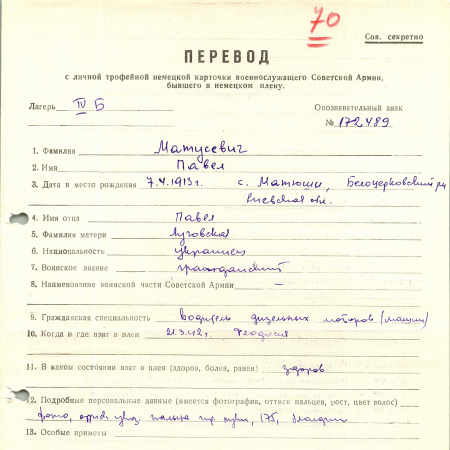 70
Сов. секретно
ПЕРЕВОД
с личной трофейной немецкой карточки военнослужащего Советской Армии,
бывшего в немецком плену.
Лагерь IV Б
Опознавательный знак
№ 172489
1. Фамилия Матусевич
2. Имя Павел
3. Дата и место рождения 7.4.1913г. с. Матюши, Белоцерковский рн
Киевская обл.
4. Имя отца Павел
5. Фамилия матери Луговская
6. Национальность украинец
7. Воинское звание гражданский
8. Наименование воинской части Советской Армии —
9. Гражданская специальность водитель дизельных моторов (машин)
10. Когда и где взят в плен 21.3.42г. Феодосия
11. В каком состоянии взят в плен (здоров, болен, ранен) здоров
12. Подробные персональные данные (имеется фотография, оттиск пальцев, рост, цвет волос)
фото, пальца 175, блондин
13. Особые приметы